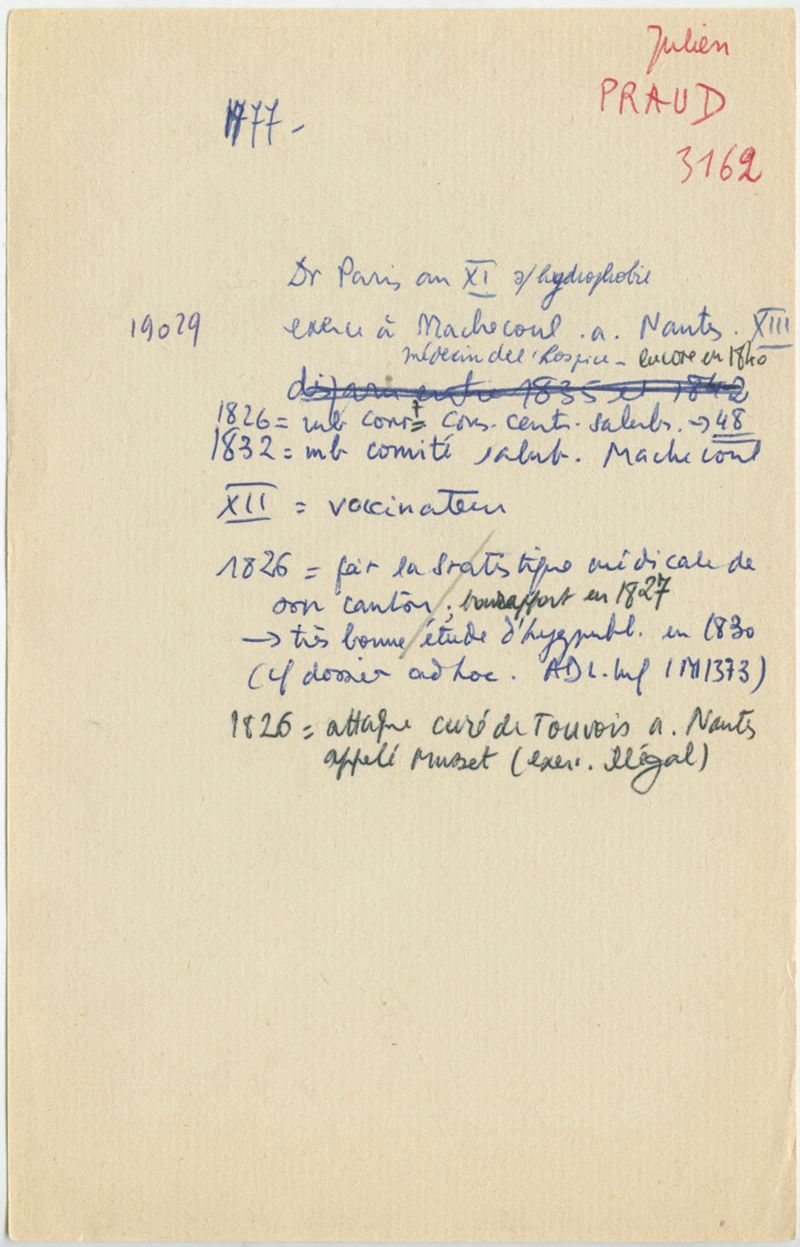 Julien
PRAUD
3162
1777 -
Dr Paris an XI s/hydrophobie
19029
exerce à Machecoul . a. Nantes . XIII
médecin de l'hospice - encore en 1840
disparu entre 1835 et 1842
1826 = mb corr+ Cons. cent. salub. → 48
1832 = mb comité salub. Machecoul
XII = vaccinateur
1826 = fait la statistique médicale de
son canton ; bon rapport en 1827
→ très bonne étude d'hyg publ. en 1830
(cf dossier ad hoc . ADL. Inf 1M1373)
1826 = attaque curé de Touvois a. Nantes
appelé Musset (exer. illégal)